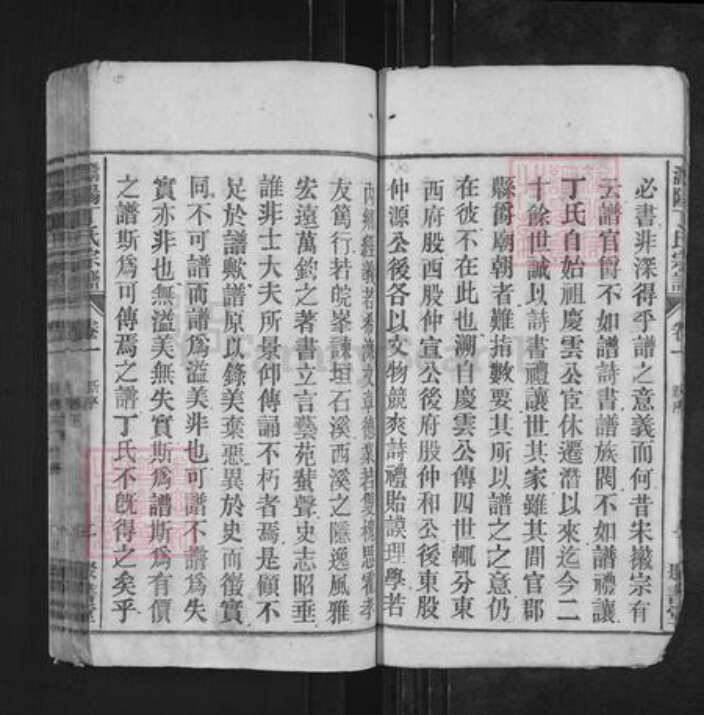 必書非深得乎譜之意義而何昔朱徽宗有
云譜官爵不如譜詩書譜族閥不如譜禮讓
丁氏自始祖慶雲公宦休遷潛以來迄今二
十餘世誠以詩書禮讓世其家雖其間官郡
縣爵廟朝者難指數要其所以譜之之意仍
在彼不在此也溯自慶雲公傳四世輒分東
西府股西股仲宣公後府股仲和公後東股
仲源公後各以文物競爽詩禮貽謨理學若
友篤行若皖峯諫垣石溪西溪之隱逸風雅
宏遠萬欽之著書立言藝苑蜚聲史志昭垂
誰非士大夫所景仰傳誦不朽者焉是顧不
足於譜歟譜原以錄美棄惡異於史而徵實
同不可譜而譜爲溢美非也可譜不譜爲失
實亦非也無溢美無失實斯爲譜斯爲有價
之譜斯爲可傳焉之譜丁氏不旣得之矣乎
丁氏宗譜
卷一